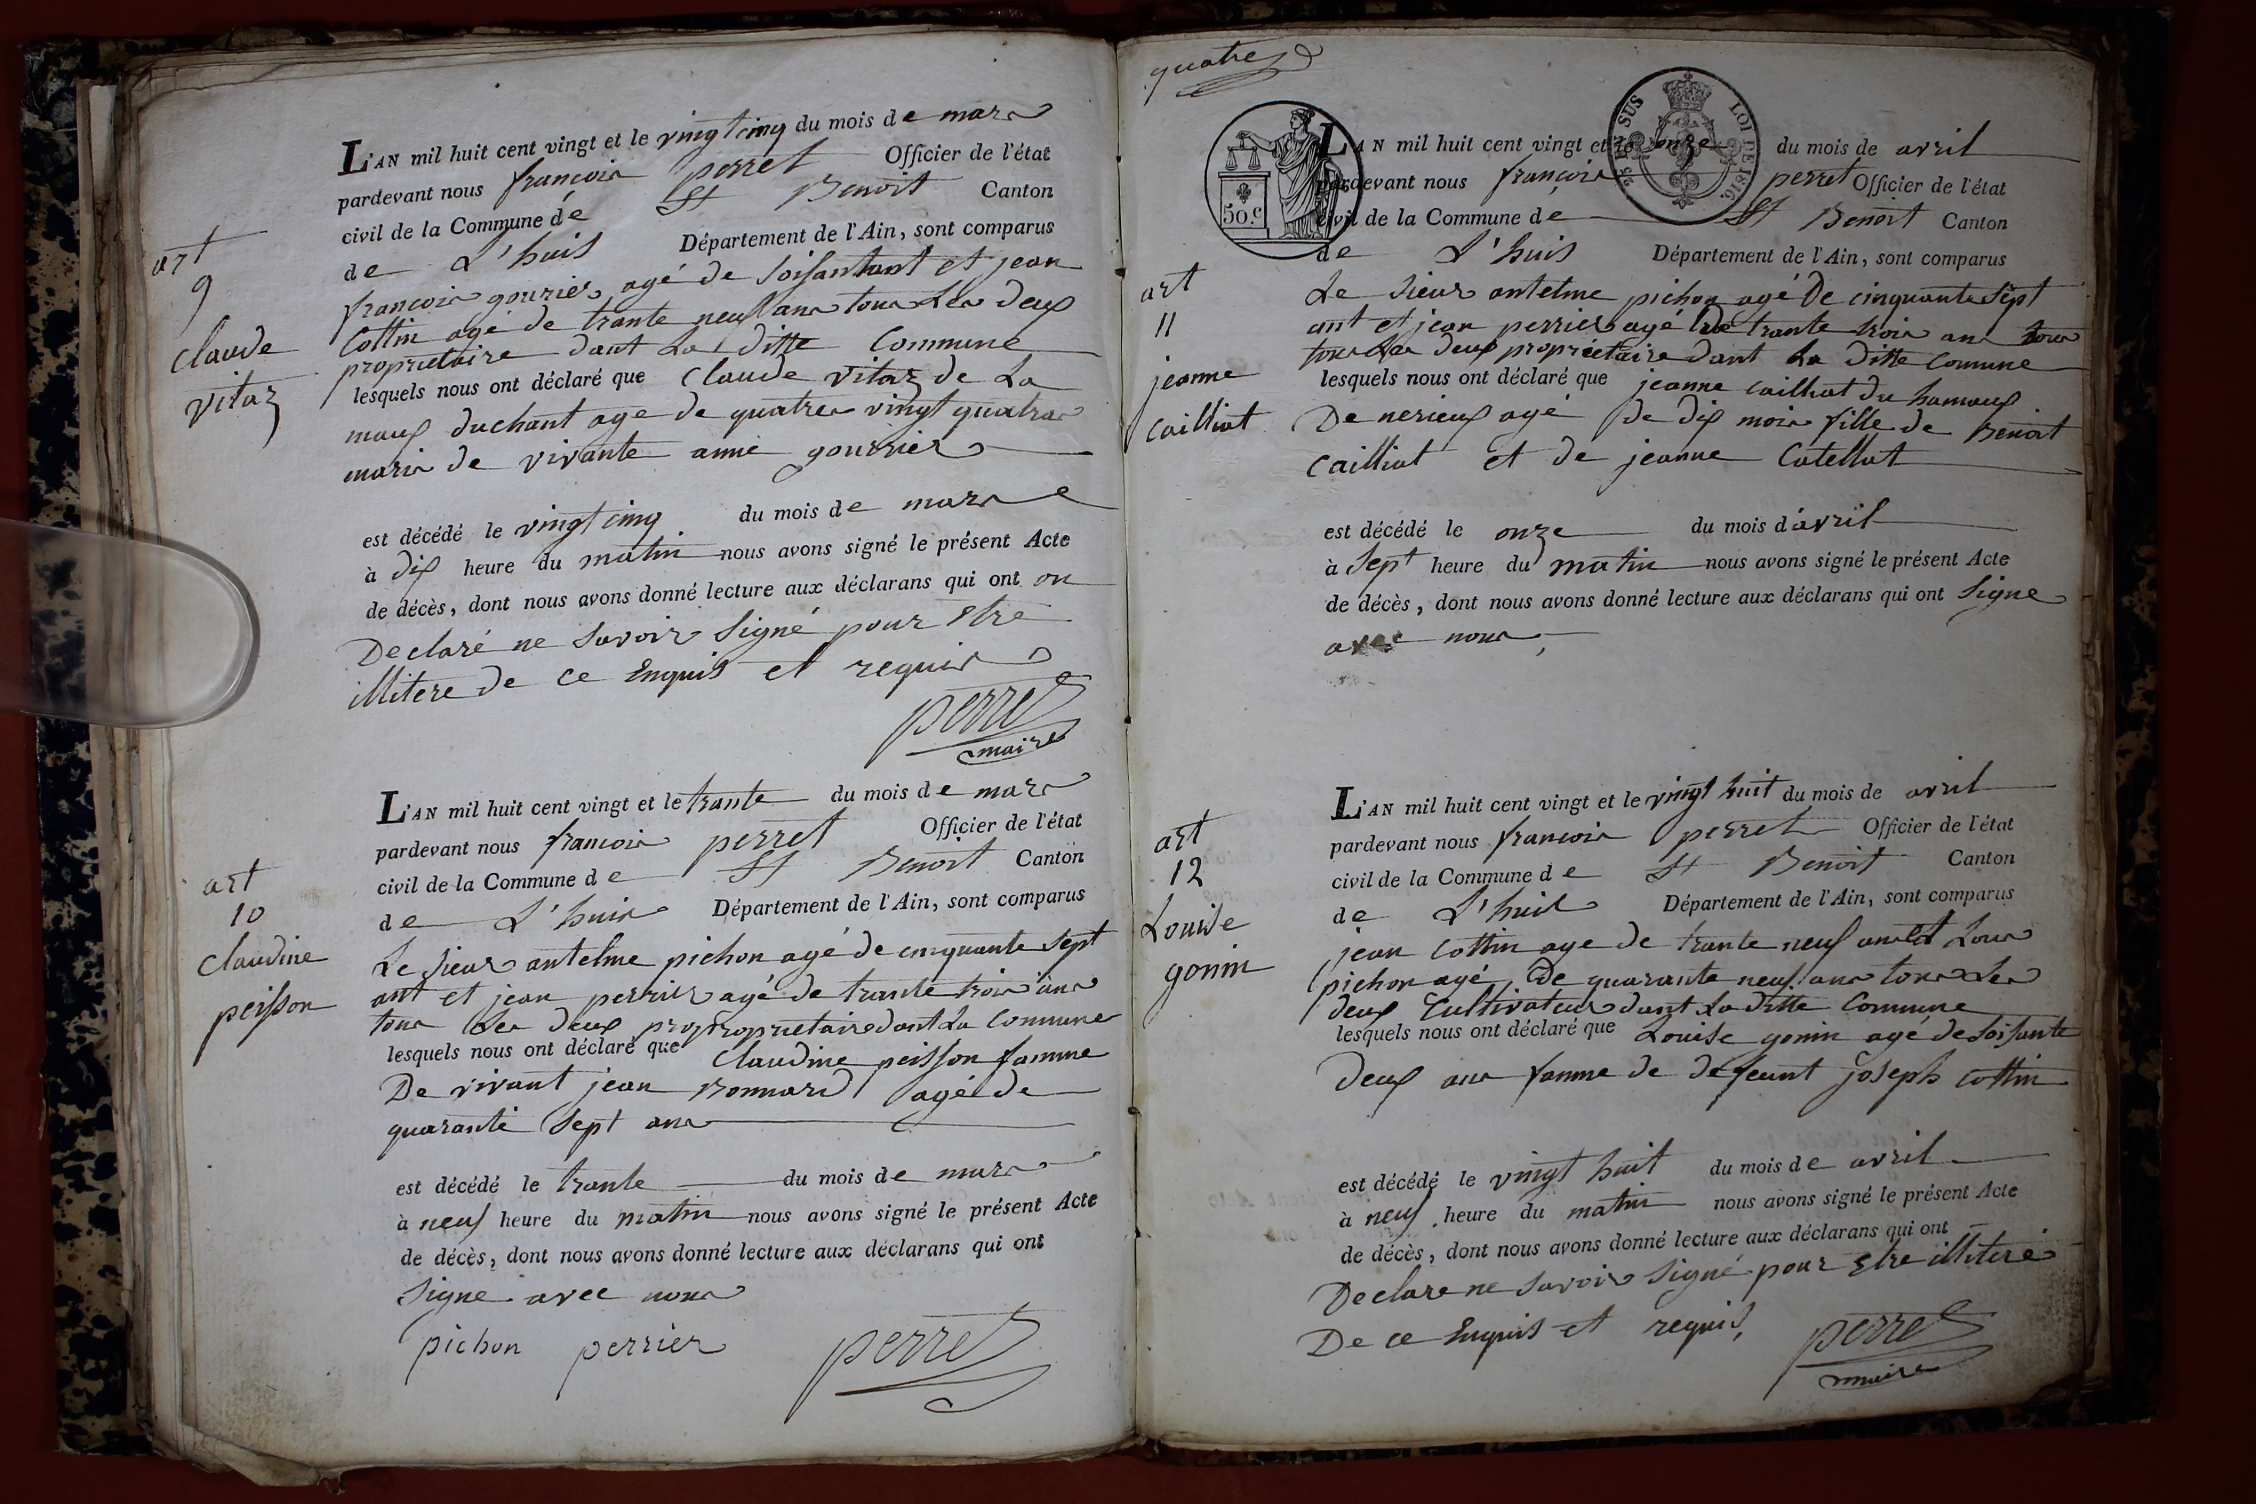 L'AN mil huit cent vingt et le vingt cinq du mois de mars
pardevant nous françois perret Officier de l'état
civil de la Commune de St Benoit Canton
de L'huis Département de l'Ain, sont comparus
françois gourier agé de soisantant et jean
Cottin agé de trante neuf ans tous Les deux
proprietaire dant La ditte Commune
lesquels nous ont déclaré que Claude vitaz de La
maux duchant age de quatres vingt quatras
maris de vivante anne gourrier
est décédé le vingt cinq du mois de mars
à dix heure du matin nous avons signé le présent Acte
de décès, dont nous avons donné lecture aux déclarans qui ont on
Declaré ne savoir signé pour Etre
illitere de ce Enquis et requis
perret
maire
art
9
claude
vitaz
L'AN mil huit cent vingt et le trante du mois de mars
pardevant nous françois perret Officier de l'état
civil de la Commune de St Benoit Canton
de L'huis Département de l'Ain, sont comparus
Le sieur antelme pichon agé de cinquante sept
ant et jean perrier agé de trante trois ans
tous Les deux proproprietaire dant La Commune
lesquels nous ont déclaré que Claudine peisson famme
De vivant jean Bonnard agé de
quarante sept ans
est décédé le trante du mois de mars
à neuf heure du matin nous avons signé le présent Acte
de décès, dont nous avons donné lecture aux déclarans qui ont
signe avec nous
pichon perrier perret
art
10
claudine
peisson
quatre
50.c
25 P% SUS LOI DE 1816
L'AN mil huit cent vingt et le onze du mois de avril
pardevant nous françois perret Officier de l'état
civil de la Commune de St Benoit Canton
de L'huis Département de l'Ain, sont comparus
Le sieur antelme pichon agé De cinquante sept
ant et jean perrier agé De trante trois ans tous
tous Les deux propriétaire dant La ditte comune
lesquels nous ont déclaré que jeanne cailliat du hamaux
De nerieux agé de dix mois fille de Benoit
cailliat et de jeanne Catellat
est décédé le onze du mois d'avril
à sept heure du matin nous avons signé le présent Acte
de décès, dont nous avons donné lecture aux déclarans qui ont signe
avec nous,
art
11
jeanne
cailliat
L'AN mil huit cent vingt et le vingt huit du mois de avril
pardevant nous françois perret Officier de l'état
civil de la Commune de St Benoit Canton
de L'huis Département de l'Ain, sont comparus
jean cottin age de trante neuf ans et Lous
pichon agé De quarante neuf ans tous Les
deux Cultivateur dant La ditte Commune
lesquels nous ont déclaré que Louise gonin agé de soisante
Deux ans famme de defeunt joseph cottin
est décédé le vingt huit du mois de avril
à neuf heure du matin nous avons signé le présent Acte
de décès, dont nous avons donné lecture aux déclarans qui ont
Declare ne savoir signé pour Etre illiteré
De ce Enquis et requis,
perret
maire
art
12
Louise
gonin